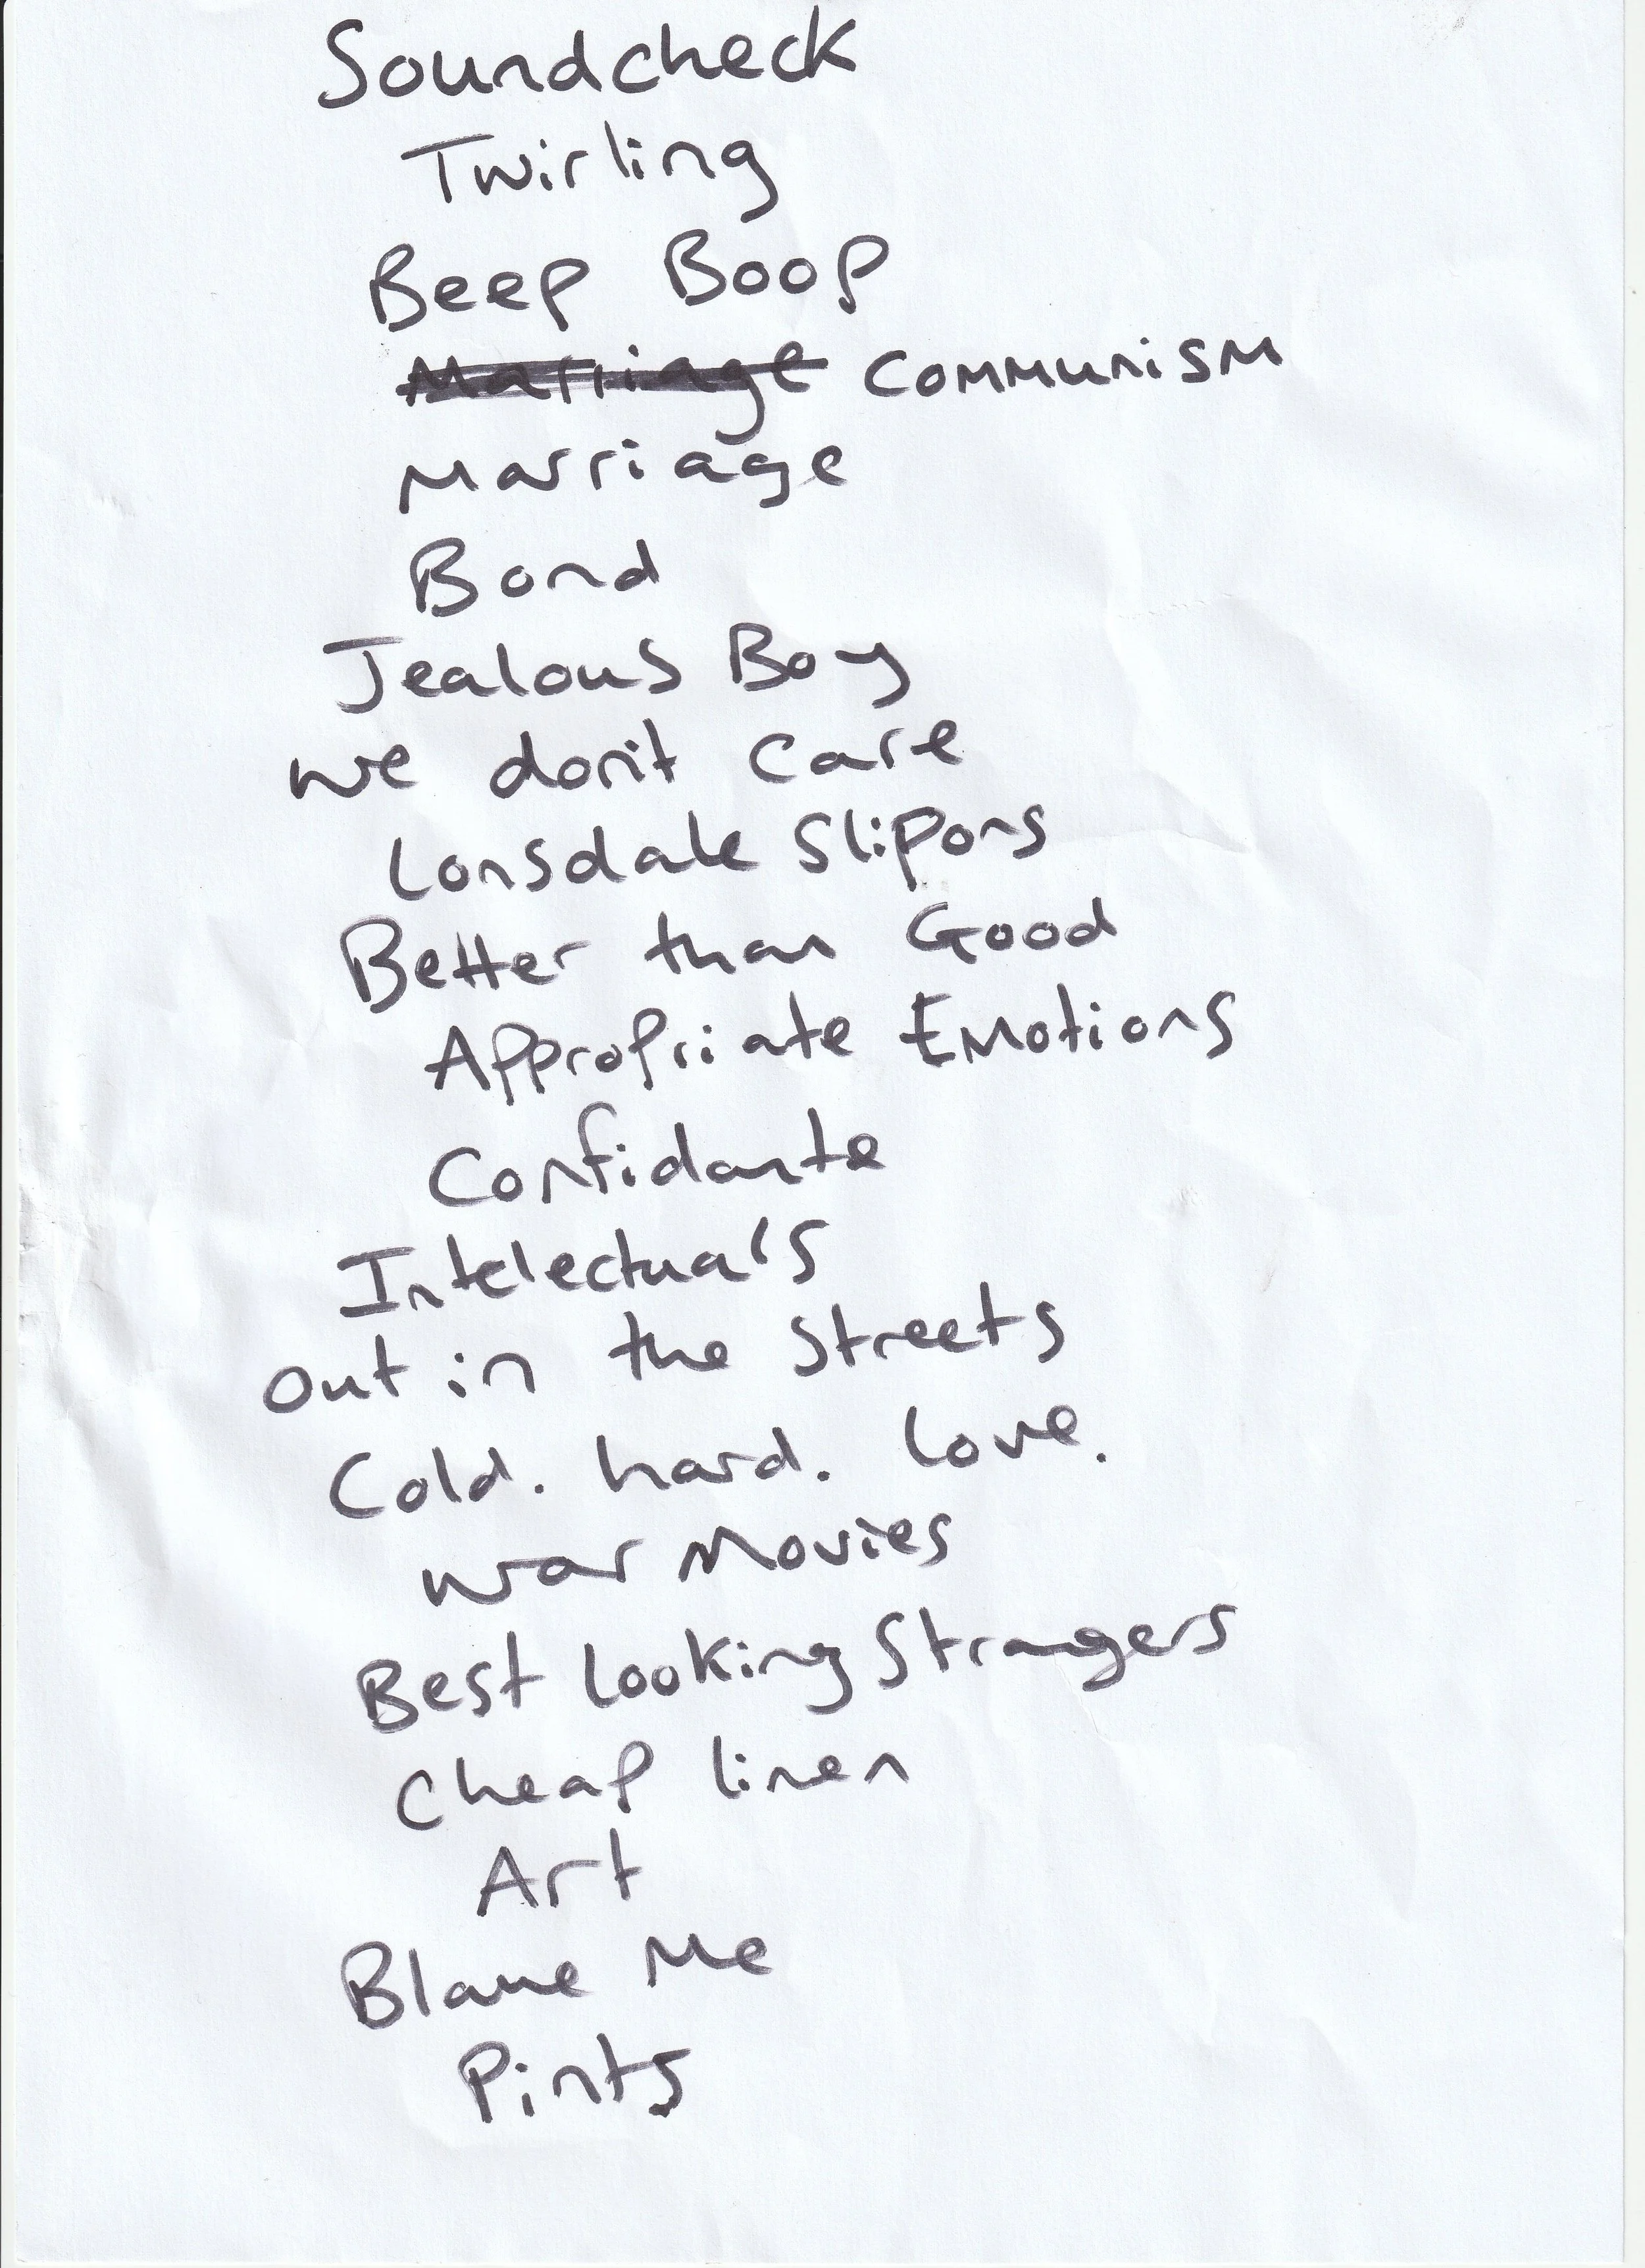 Soundcheck
Twirling
Beep Boop
Marriage Communism
Marriage
Bond
Jealous Boy
we don't care
Lonsdale Slipons
Better than Good
Appropriate Emotions
Confidante
Intelectuals
out in the Streets
Cold. hard. love.
war Movies
Best looking Strangers
Cheap linen
Art
Blame Me
Pints